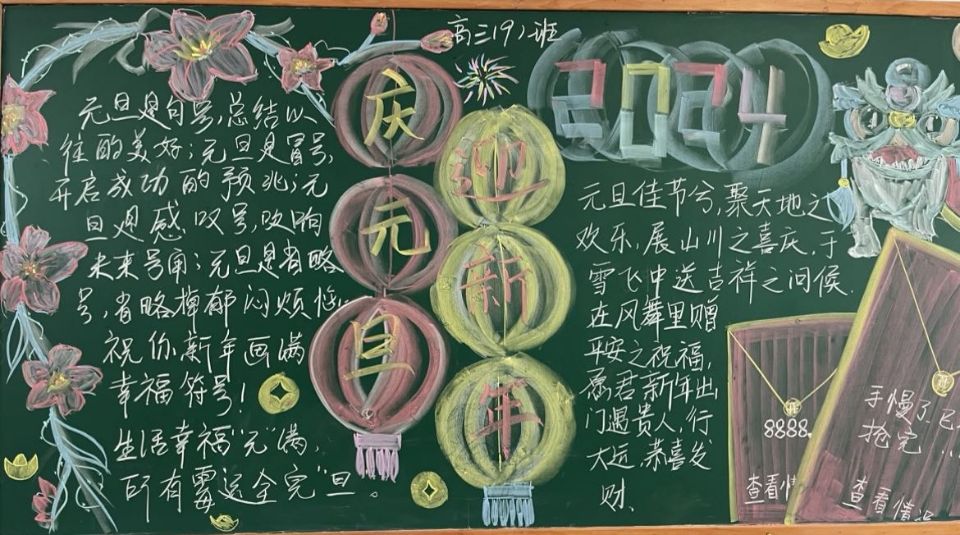 高三(9)班
2024
庆元旦
迎新年
元旦是句号,总结以
往的美好;元旦是冒号,
开启成功的预兆;元
旦是感叹号,吹响
未来号角;元旦是省略
号,省略掉郁闷烦恼。
祝你新年画满
幸福符号!
生活幸福“元”满,
所有霉运全完“旦”。
元旦佳节兮,聚天地之
欢乐,展山川之喜庆,于
雪飞中送吉祥之问候.
在风舞里赠
平安之祝福,
愿君新年出
门遇贵人,行
大运,恭喜发
财.
8888.
查看情
手慢了,已
抢完...
查看情况